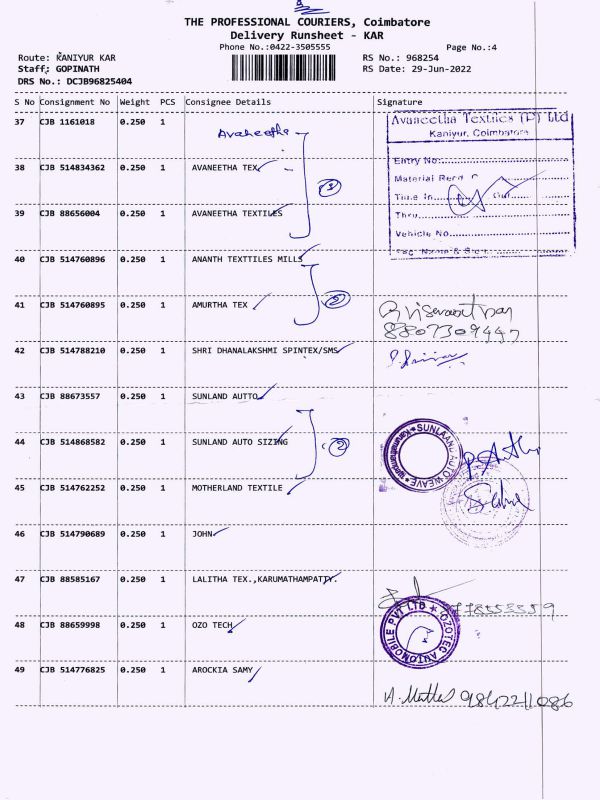 THE PROFESSIONAL COURIERS, Coimbatore
Delivery Runsheet - KAR
Phone No.:0422-3505555 Page No.:4
Route: KANIYUR KAR RS No.: 968254
Staff: GOPINATH RS Date: 29-Jun-2022
DRS No.: DCJB96825404
S No Consignment No Weight PCS Consignee Details Signature
37 CJB 1161018 0.250 1 Avaneetha
Avaneetha Textiles (P) Ltd
Kaniyur, Coimbatore
Entry No:
38 CJB 514834362 0.250 1 AVANEETHA TEX
Material Recd
1
Time In Out
39 CJB 88656004 0.250 1 AVANEETHA TEXTILES
Thru
Vehicle No.
40 CJB 514760896 0.250 1 ANANTH TEXTTILES MILLS
2
41 CJB 514760895 0.250 1 AMURTHA TEX
8807309447
42 CJB 514788210 0.250 1 SHRI DHANALAKSHMI SPINTEX/SMS
43 CJB 88673557 0.250 1 SUNLAND AUTTO
44 CJB 514868582 0.250 1 SUNLAND AUTO SIZING 2
SUNLAAND AUTO WEAVE
45 CJB 514762252 0.250 1 MOTHERLAND TEXTILE
46 CJB 514790689 0.250 1 JOHN
47 CJB 88585167 0.250 1 LALITHA TEX.,KARUMATHAMPATTY.
48 CJB 88659998 0.250 1 OZO TECH
OZOTEC AUTOMOBILE PVT LTD
49 CJB 514776825 0.250 1 AROCKIA SAMY
9842211086